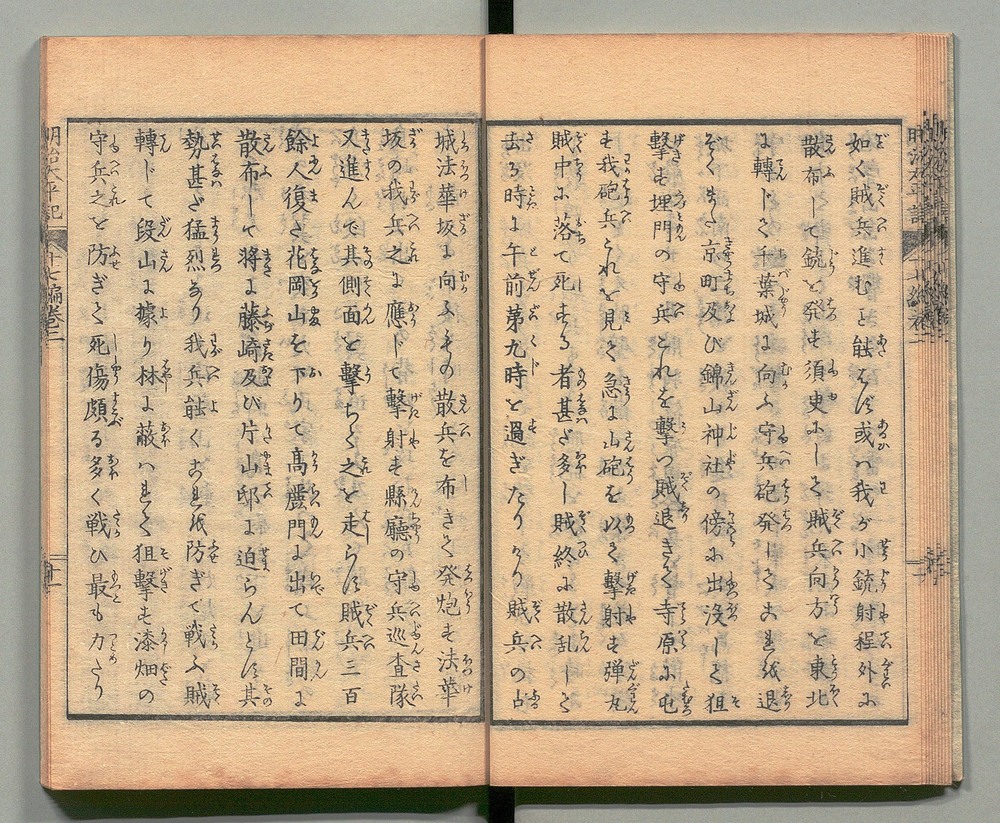 如く賊兵進むと能はず或ハ我が小銃射程外に
散布して銃を発も須臾にして賊兵向方を東北
に轉じて千葉城に向ふ守兵砲発してこれを退
そく又京町及び錦山神社の傍に出没して狙
撃も埋門の守兵これを撃つ賊退きて寺原に屯
も我砲兵これを見て急に山砲を以て撃射も弾丸
賊中に落て死する者甚だ多し賊終に散乱して
去る時に午前第九時を過ぎたりける賊兵の占
城法華坂に向ふもの散兵を布きて発炮も法華
坂の我兵之に應じて撃射も縣廳の守兵巡査隊
又進んで其側面を撃ちて之を走らす賊兵三百
餘人復た花岡山を下りて高麗門に出て田間に
散布して将に藤崎及び片山邸に迫らんとす其
勢甚だ猛烈なり我兵能くこれを防ぎて戦ふ賊
轉じて段山に據り林に蔽ハれて狙撃も漆畑の
守兵之を防ぎて死傷頗る多く戦ひ最も力たり
明治太平記
十七編巻之二
十一